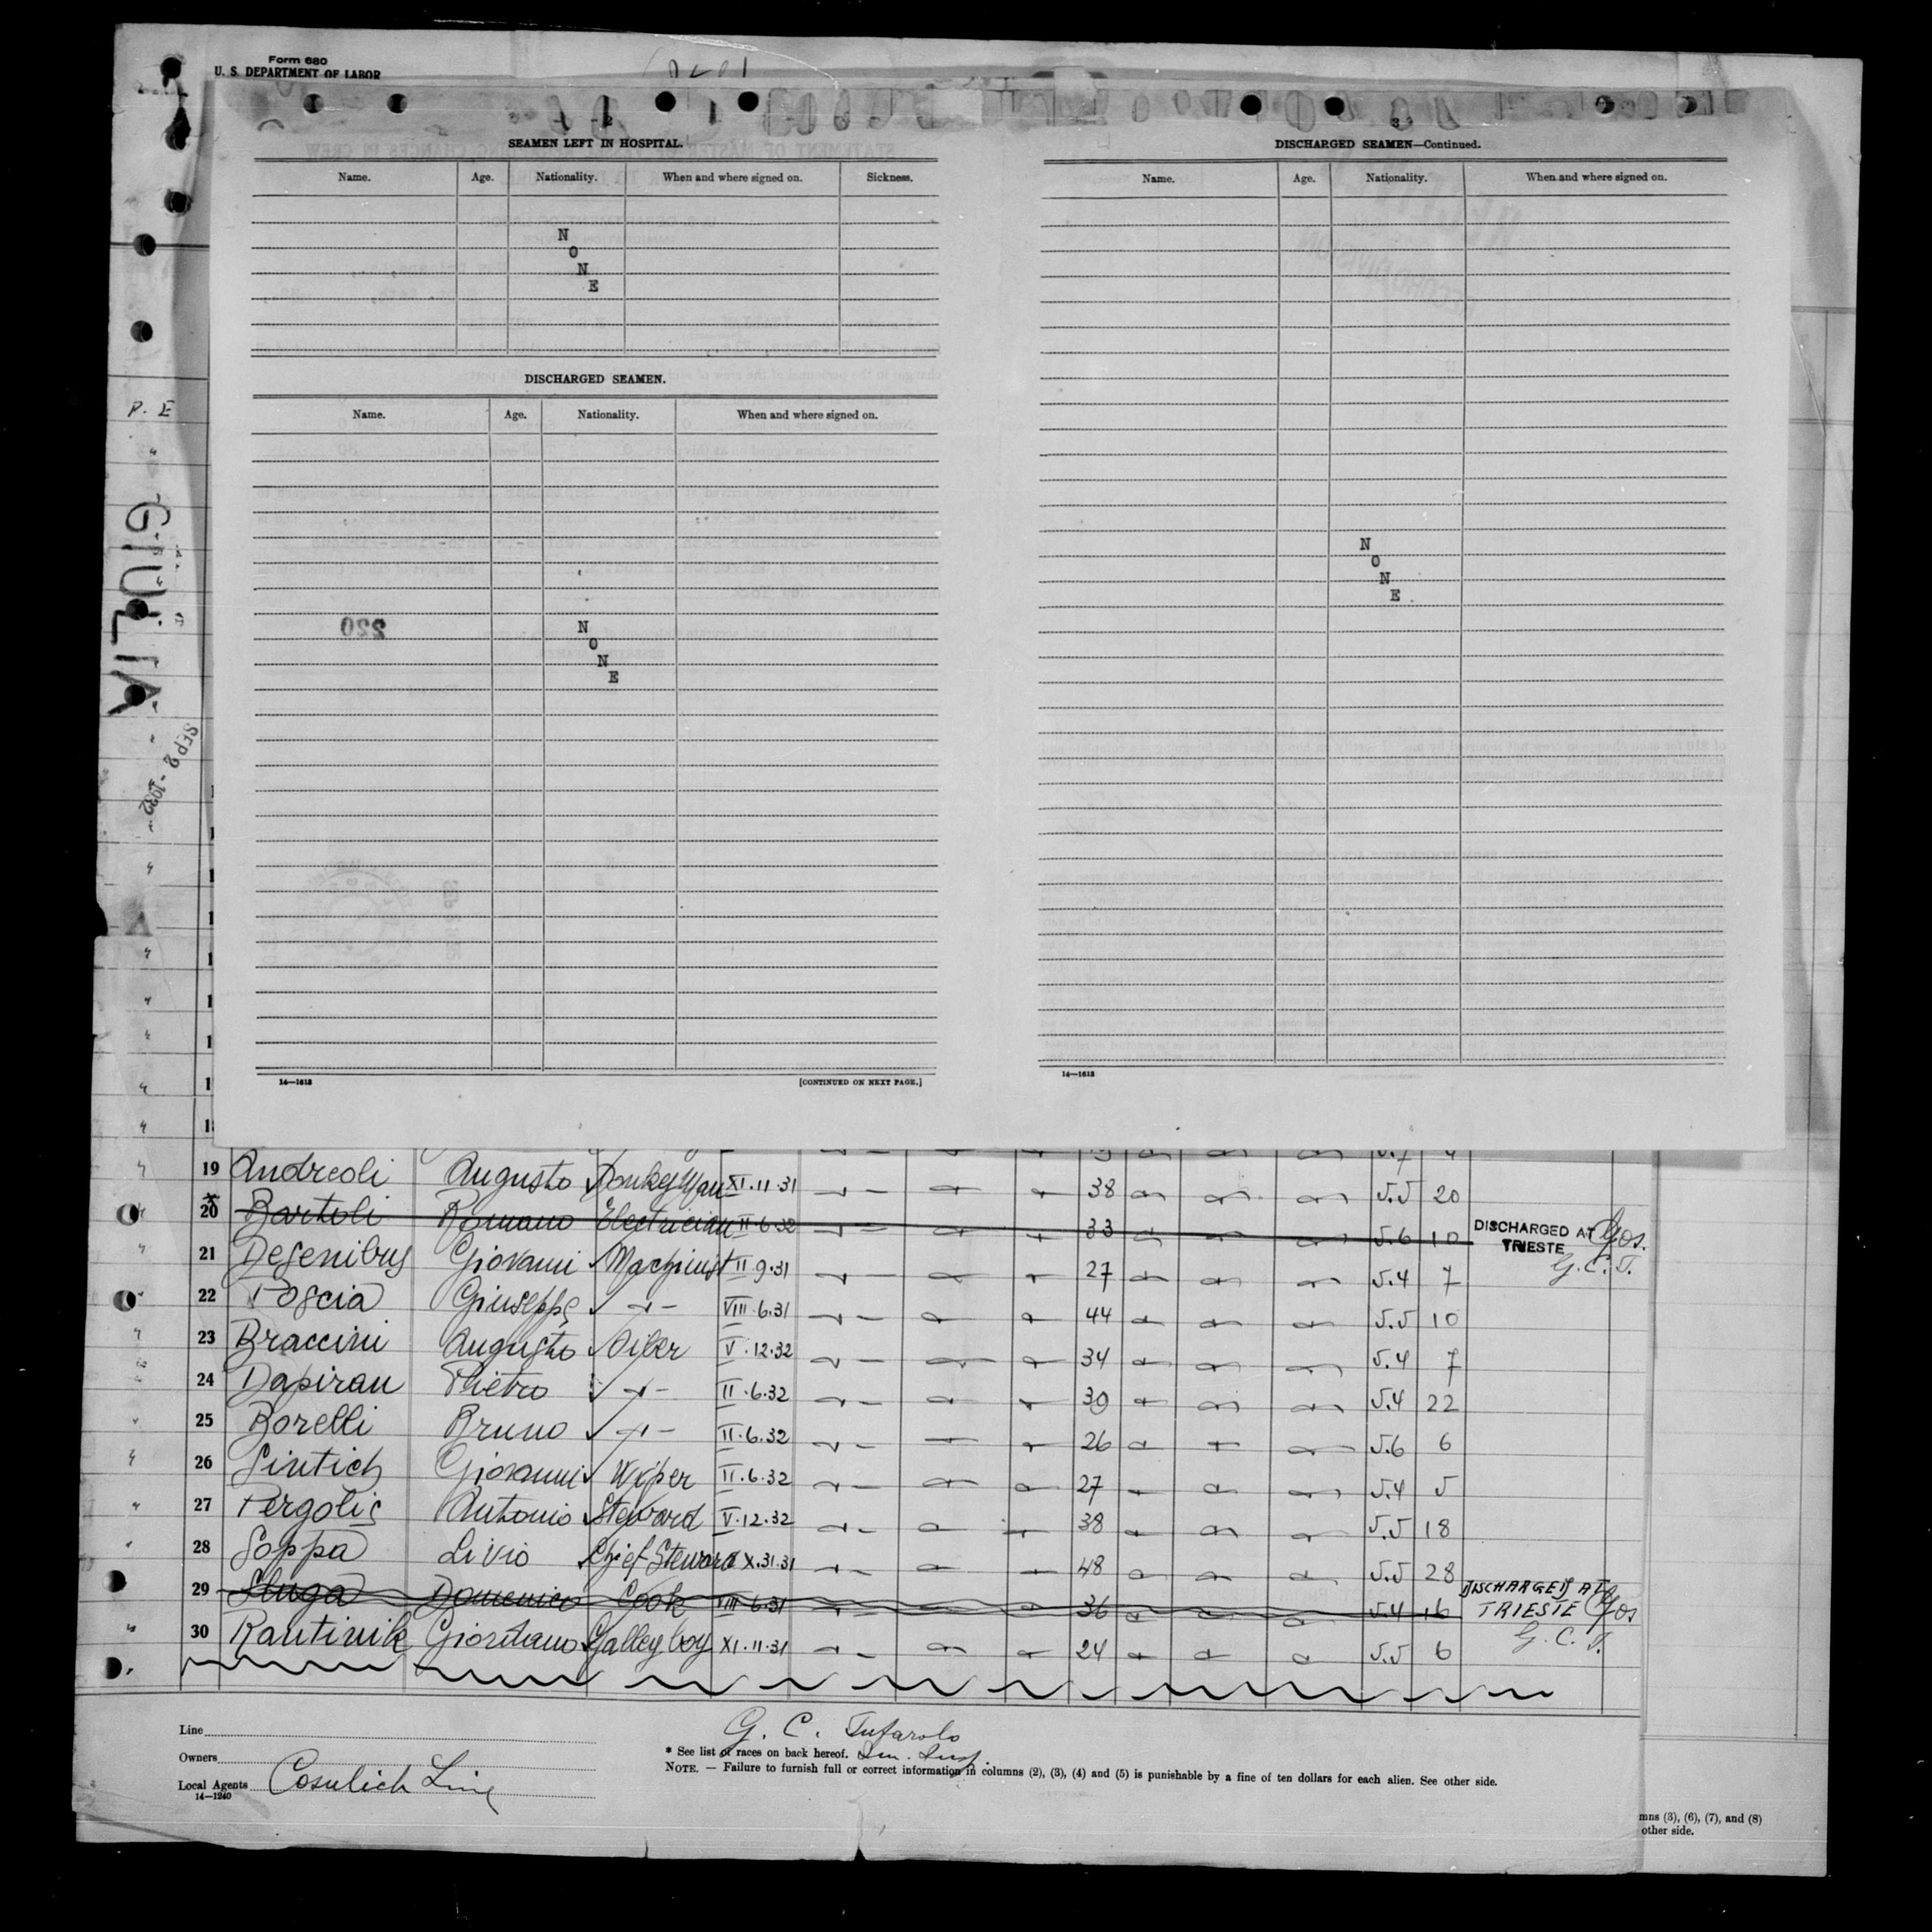 Form 680
U. S. DEPARTMENT OF LABOR
2
SEAMEN LEFT IN HOSPITAL.
Name. Age. Nationality. When and where signed on. Sickness.
N
O
N
E
DISCHARGED SEAMEN.
Name. Age. Nationality. When and where signed on.
220
N
O
N
E
14—1613 [CONTINUED ON NEXT PAGE.]
3
DISCHARGED SEAMEN—Continued.
Name. Age. Nationality. When and where signed on.
N
O
N
E
14—1613
P. E
GIULIA
SEP 2 - 1932
19 Andreoli Augusto Donkeyman XI.11.31 38 5.5 20
20 Bartoli Romano Electrician II.6.32 33 5.6 10 DISCHARGED AT TRIESTE
G. C. T.
21 Degenibus Giovanni Machinist II.9.31 27 5.4 7
22 Poscia Giuseppe VIII.6.31 44 5.5 10
23 Braccini Augusto Oiler V.12.32 34 5.4 7
24 Dapiran Pietro II.6.32 30 5.4 22
25 Borelli Bruno II.6.32 26 5.6 6
26 Sintich Giovanni Wiper II.6.32 27 5.4 5
27 Pergolis Antonio Steward V.12.32 38 5.5 18
28 Soppa Livio Chief Steward X.31.31 48 5.5 28
29 Sluga Domenico Cook VIII.6.31 36 5.4 16 DISCHARGED AT TRIESTE
G. C. T.
30 Rantinik Giordano Galley boy XI.11.31 24 5.5 6
Line
Owners
Local Agents Cosulich Line
14—1240
G. C. Tufarolo
Imm. Insp.
* See list of races on back hereof.
NOTE. — Failure to furnish full or correct information in columns (2), (3), (4) and (5) is punishable by a fine of ten dollars for each alien. See other side.
mns (3), (6), (7), and (8)
other side.